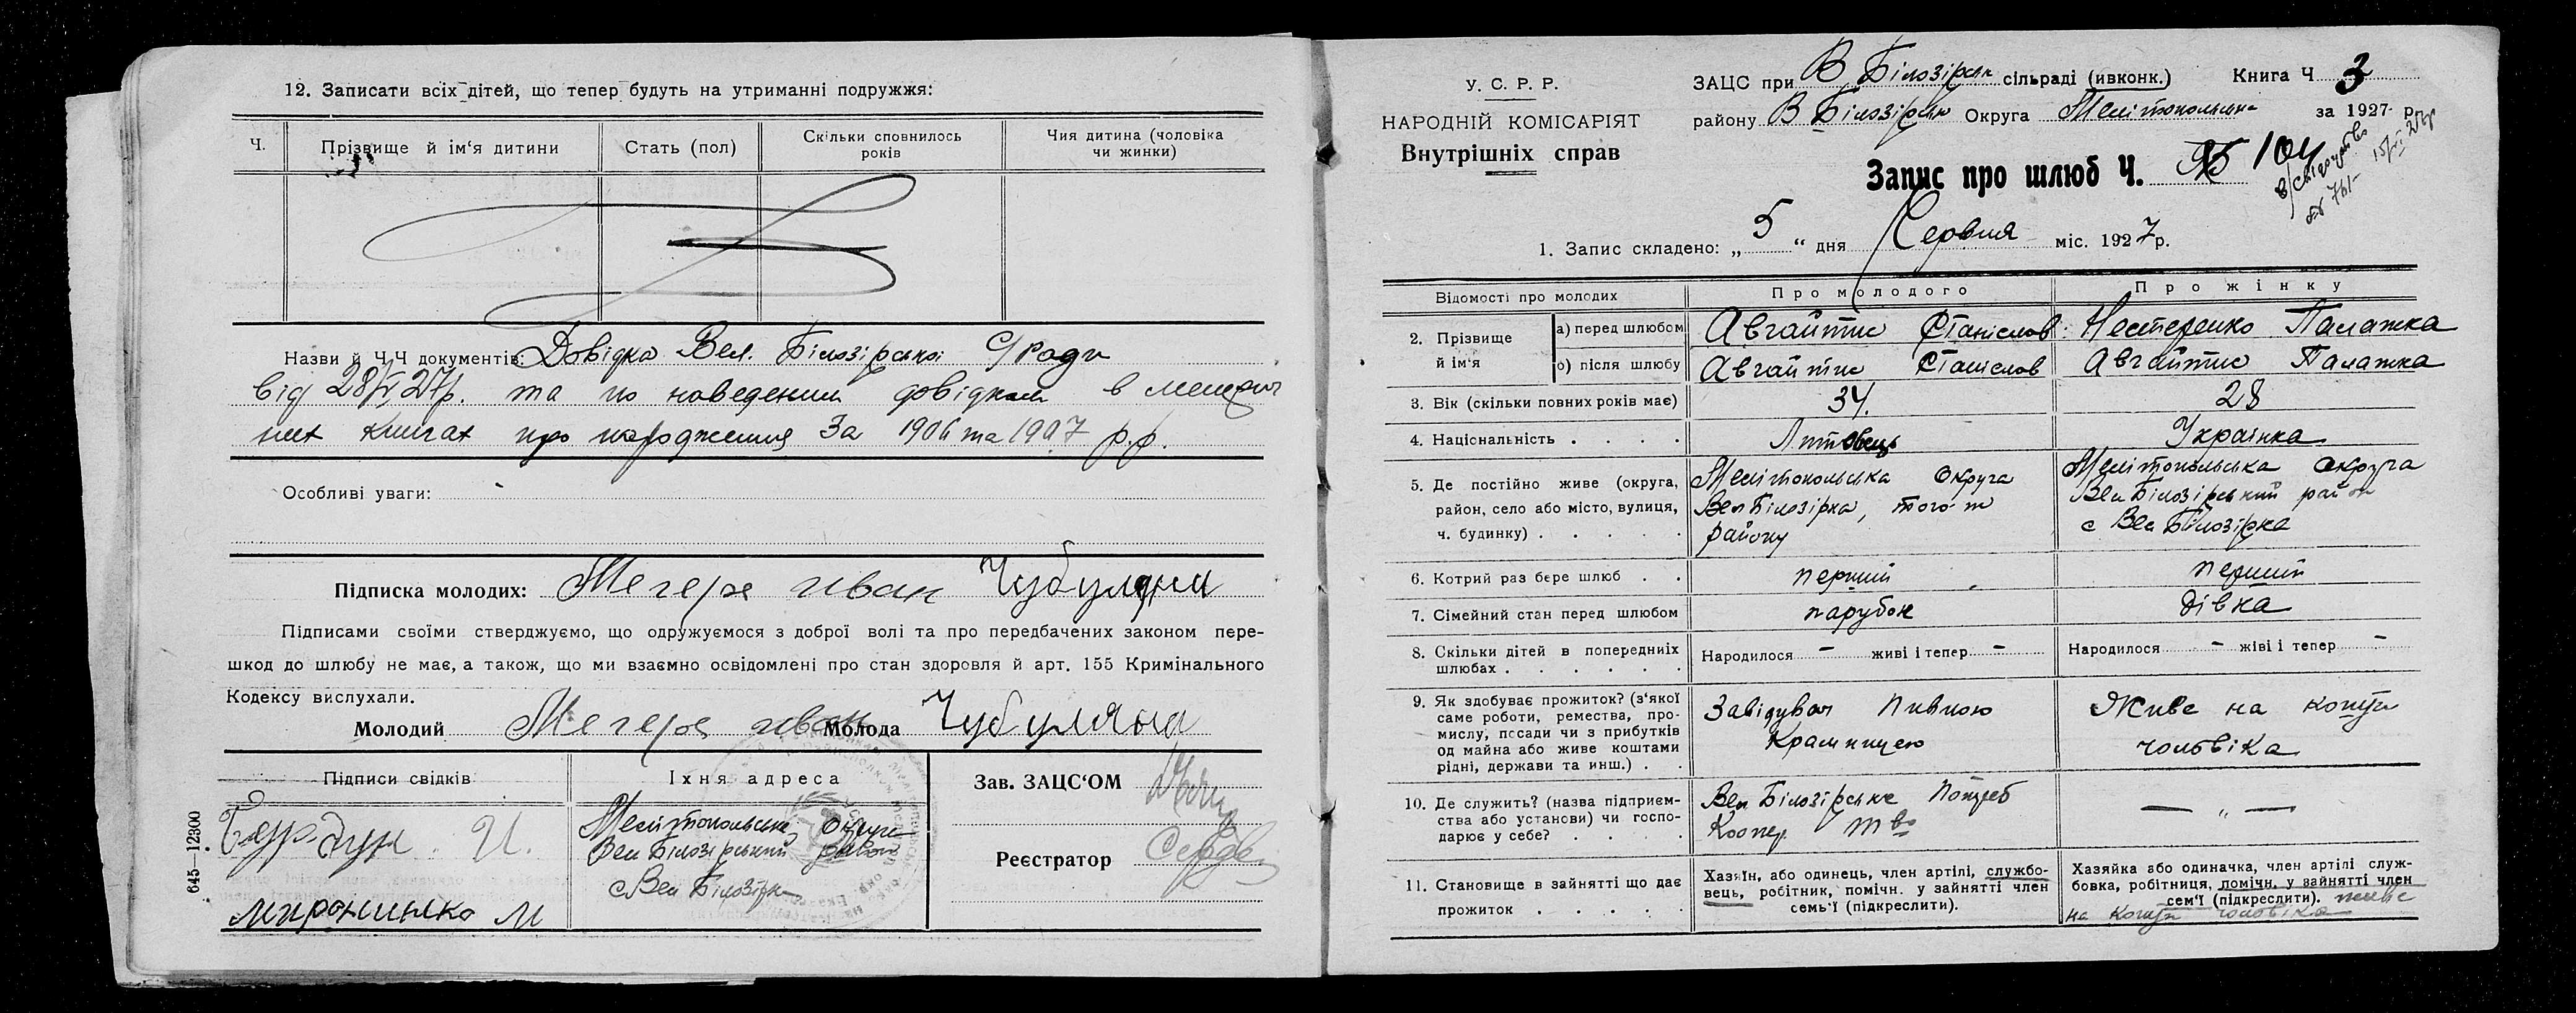 12. Записати всіх дітей, що тепер будуть на утриманні подружжя:
Ч. Прізвище й ім'я дитини Стать (пол) Скільки сповнилось років Чия дитина (чоловіка чи жинки)
Назви й Ч.Ч документів: Довідка Вел. Білозірської С/Ради
від 28/V 27р. та по наведеним довідкам в
них книгах про народження за 1906 та 1907 р.р.
Особливі уваги:
Підписка молодих: Мегеря иван
Підписами своїми стверджуємо, що одружуємося з доброї волі та про передбачених законом пере-
шкод до шлюбу не має, а також, що ми взаємно освідомлені про стан здоровля й арт. 155 Кримінального
Кодексу вислухали.
Молодий Мегеря иван Молода
Підписи свідків Їхня адреса Зав. ЗАЦС'ОМ
Мелітопольська Округа
Вел Білозірський район
с Вел Білозірка
Реєстратор
И.
Миронинко М
645—12300
У. С. Р. Р.
НАРОДНІЙ КОМІСАРІЯТ
Внутрішніх справ
ЗАЦС при В Білозірськ сільраді (ивконк.) Книга Ч 3
району В Білозірськ Округа Мелітопольська за 1927 р.
Запис про шлюб Ч. 95 104
1. Запис складено: „5“ дня Червня міс. 1927р.
Відомості про молодих Про молодого Про жінку
2. Прізвище й ім'я а) перед шлюбом Авгайтис Станіслов Нестеренко Палажка
о) після шлюбу Авгайтис Станіслов Авгайтис Палажка
3. Вік (скільки повних років має) 34. 28
4. Національність Литовець Українка
5. Де постійно живе (округа, район, село або місто, вулиця, ч. будинку)
Мелітопольська Округа
Вел Білозірка, того ж
району
Мелітопольська округа
Вел Білозірський район
с Вел Білозірка
6. Котрий раз бере шлюб перший перший
7. Сімейний стан перед шлюбом парубок дівка
8. Скільки дітей в попередниіх шлюбах Народилося – живі і тепер – Народилося – жіві і тепер –
9. Як здобуває прожиток? (з'якої
саме роботи, ремества, про-
мислу, посади чи з прибутків
од майна або живе коштами
рідні, держави та инш.)
Завідувач Пивною
Крамницею
Живе на кошти
чоловіка
10. Де служить? (назва підприєм-
ства або установи) чи госпо-
дарює у себе?
Вел Білозірське Потреб
Коопер. Тво
— „ —
11. Становище в зайнятті що дає
прожиток
Хазяїн, або одинець, член артілі, службо-
вець, робітник, помічн. у зайнятті член
семь'ї (підкреслити).
Хазяйка або одиначка, член артілі служ-
бовка, робітниця, помічн. у зайнятті член
сем'ї (підкреслити). живе
на кошти чоловіка